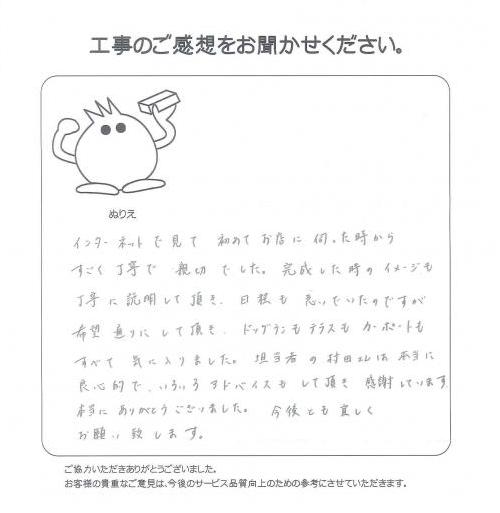 工事のご感想をお聞かせください。
ぬりえ
インターネットで見て 初めてお店に伺った時から
すごく丁寧で 親切でした。完成した時のイメージも
丁寧に説明して頂き、目根も 思っていたのですが
希望通りにして頂き、ドッグランもテラスも カーポートも
すべて 気に入りました。担当者の村田さんは本当に
良心的で、いろいろアドバイスもして頂き 感謝しています
本当に ありがとうございました。 今後とも宜しく
お願い致します。
ご協力いただきありがとうございました。
お客様の貴重なご意見は、今後のサービス品質向上のための参考にさせていただきます。